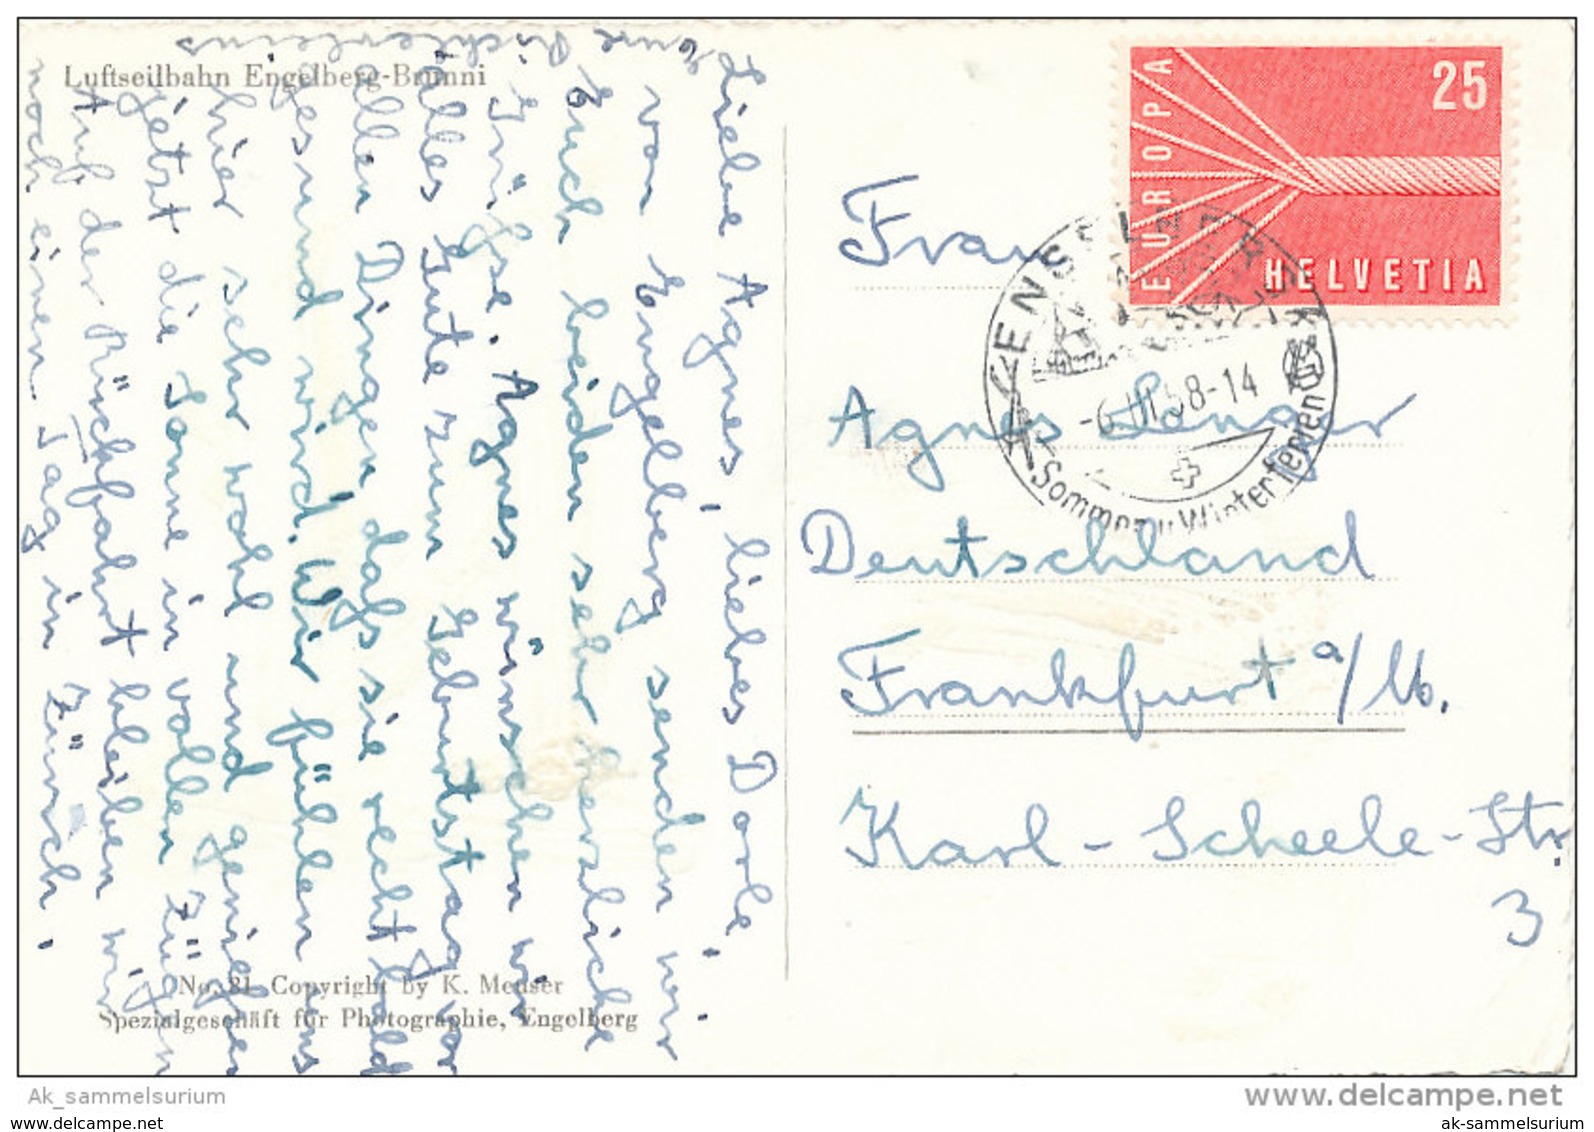 Luftseilbahn Engelberg-Brunni
Liebe Agnes, liebes Dorle,
von Engelberg senden wir
Euch beiden sehr herzliche
Grüße. Agnes wünschen wir
alles Gute zum Geburtstag vor
allen Dingen daß sie recht bald
gesund wird. Wir fühlen uns
hier sehr wohl und genießen
jetzt die Sonne in vollen Zügen
Auf der Rückfahrt bleiben wir
noch einen Tag in Zürich.
Eure
No. 81 Copyright by K. Meuser
Spezialgeschäft für Photographie, Engelberg
EUROPA
25
HELVETIA
-6.III.58-14
Sommer u Winterferien
Frau
Agnes Langer
Deutschland
Frankfurt a/M.
Karl-Scheele-Str.
3
Ak_sammelsurium
www.delcampe.net
www.ak-sammelsurium.com
ak-sammelsurium.com